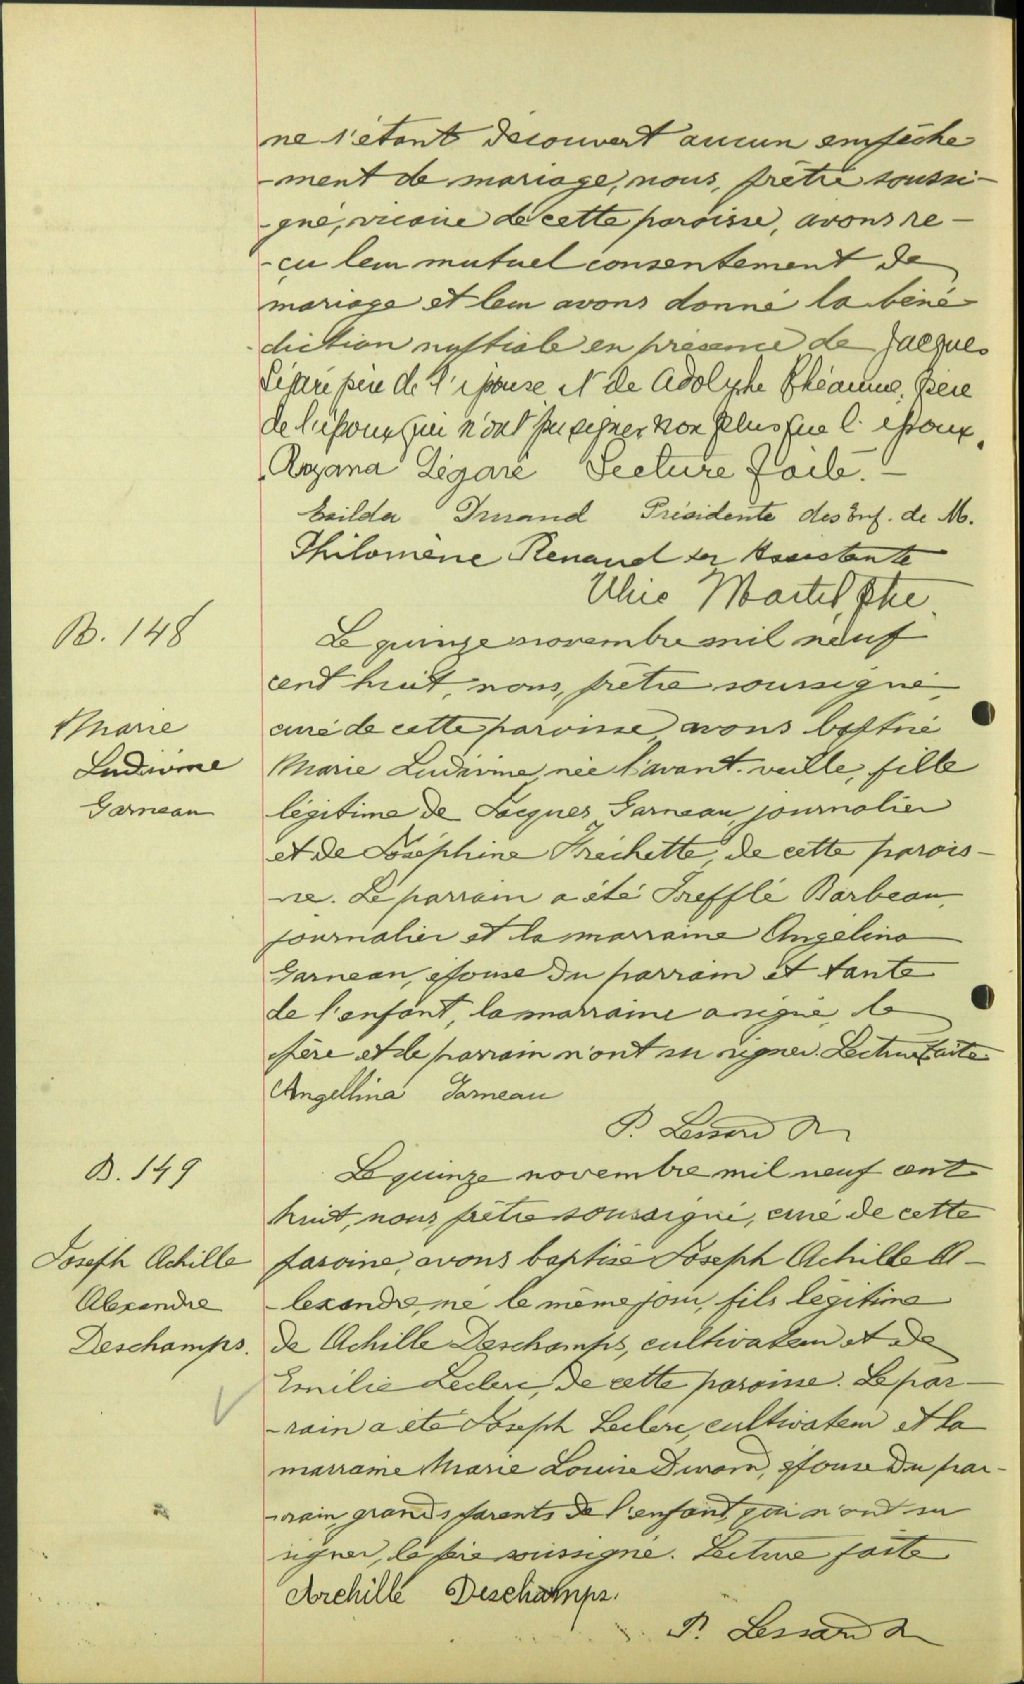 ne s'étant découvert aucun empêche
-ment de mariage, nous, prêtre soussi-
-gné, vicaire de cette paroisse, avons re-
-çu leur mutuel consentement de
mariage et leur avons donné la béné-
-diction nuptiale en présence de Jacques
Légaré père de l'épouse et de Adolphe Rhéaume, père
de l'époux qui n'ont pu signer non plus que l'époux.
Rozana Légaré Lecture faite. -
Durand Présidente des Enf. de M.
Philomène Renaud Assistante
Ulric Martel Ptre.
B. 148
Le quinze novembre mil neuf
cent huit, nous, prêtre soussigné,
Marie
curé de cette paroisse avons baptisé
Ludivine
Marie Ludivine, née l'avant-veille, fille
Garneau
légitime de Jacques Garneau, journalier
et de Joséphine Fréchette, de cette parois-
-se. Le parrain a été Trefflé Barbeau,
journalier et la marraine Angélina
Garneau, épouse du parrain et tante
de l'enfant, la marraine a signé, le
père et le parrain n'ont su signer. Lecture faite.
Angellina Garneau
P. Lessard
B. 149
Le quinze novembre mil neuf cent
huit, nous, prêtre soussigné, curé de cette
Joseph Achille
paroisse, avons baptisé Joseph Achille A-
Alexandre
-lexandre, né le même jour, fils légitime
Deschamps.
de Achille Deschamps, cultivateur et de
Emilie Leclerc, de cette paroisse. Le par-
-rain a été Joseph Leclerc, cultivateur et la
marraine Marie Louise Durand, épouse du par-
-rain, grands parents de l'enfant, qui n'ont su
signer, le père soussigné. Lecture faite
Archille Deschamps.
P. Lessard